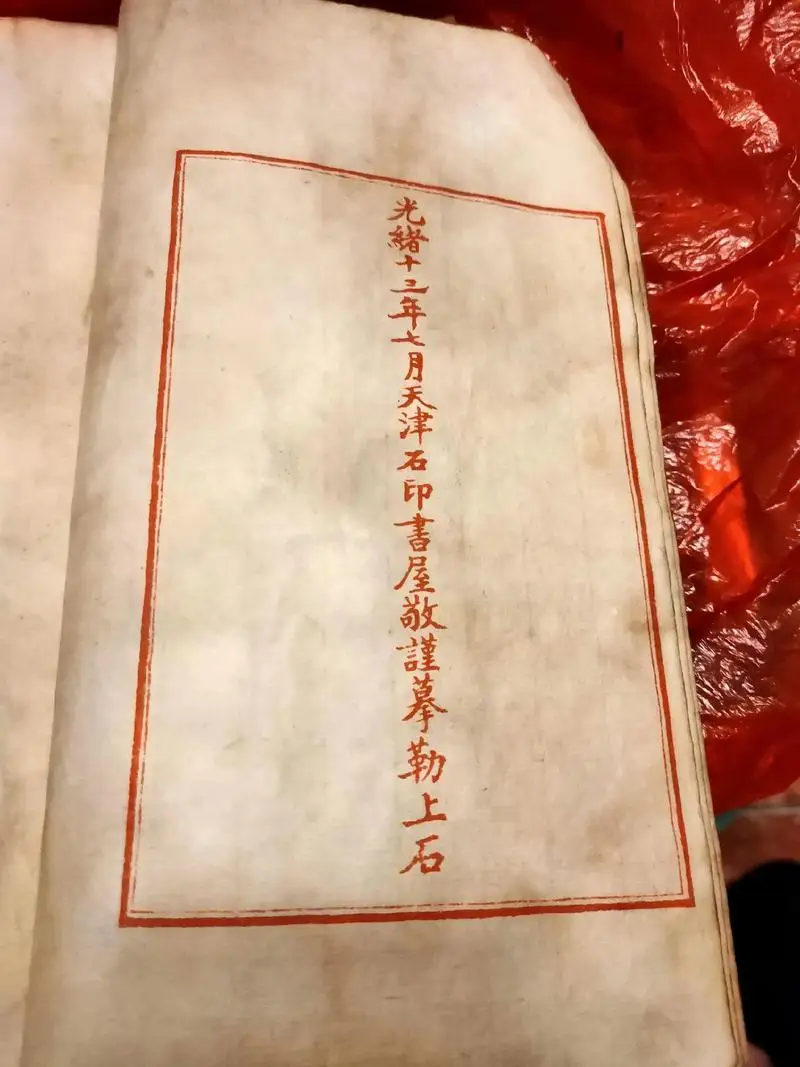 光緒十三年七月天津石印書屋敬謹摹勒上石